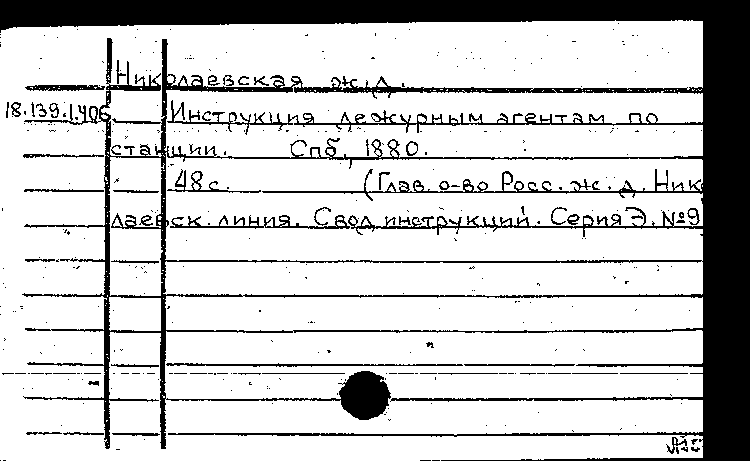 Николаевская ж.д.
18.139.1.406. Инструкция дежурным агентам по
станции. Спб., 1880.
48с. (Глав. о-во Росс. ж. д. Нико
лаевск. линия. Свод инструкций. Серия Э. №9